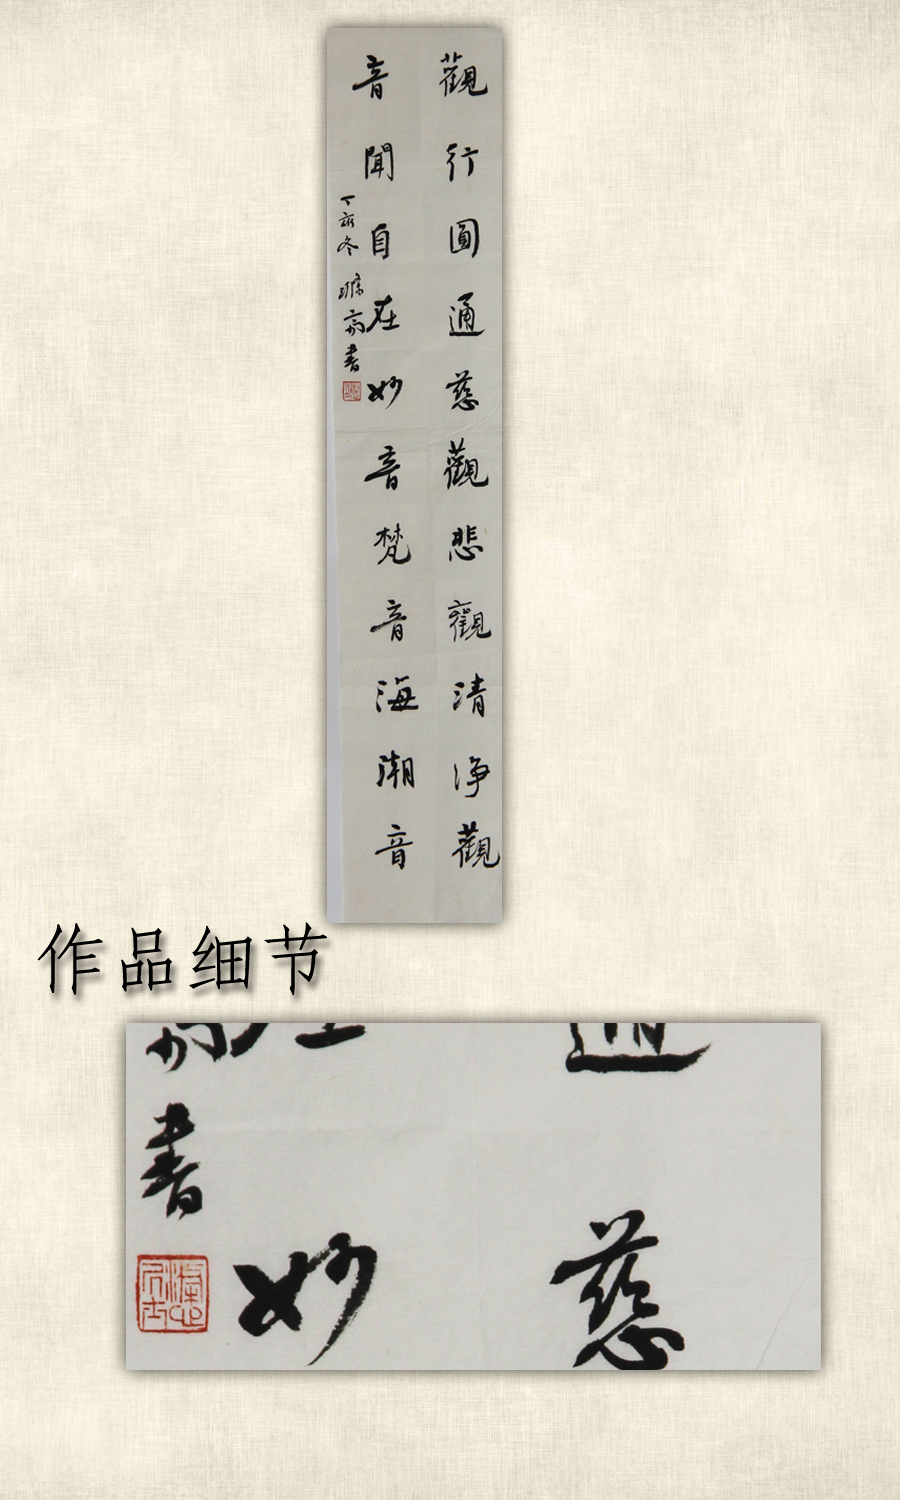 觀行圓通慈觀悲觀清淨觀
音聞自在妙音梵音海潮音
丁亥冬
書
作品细节
通
慈
妙
書